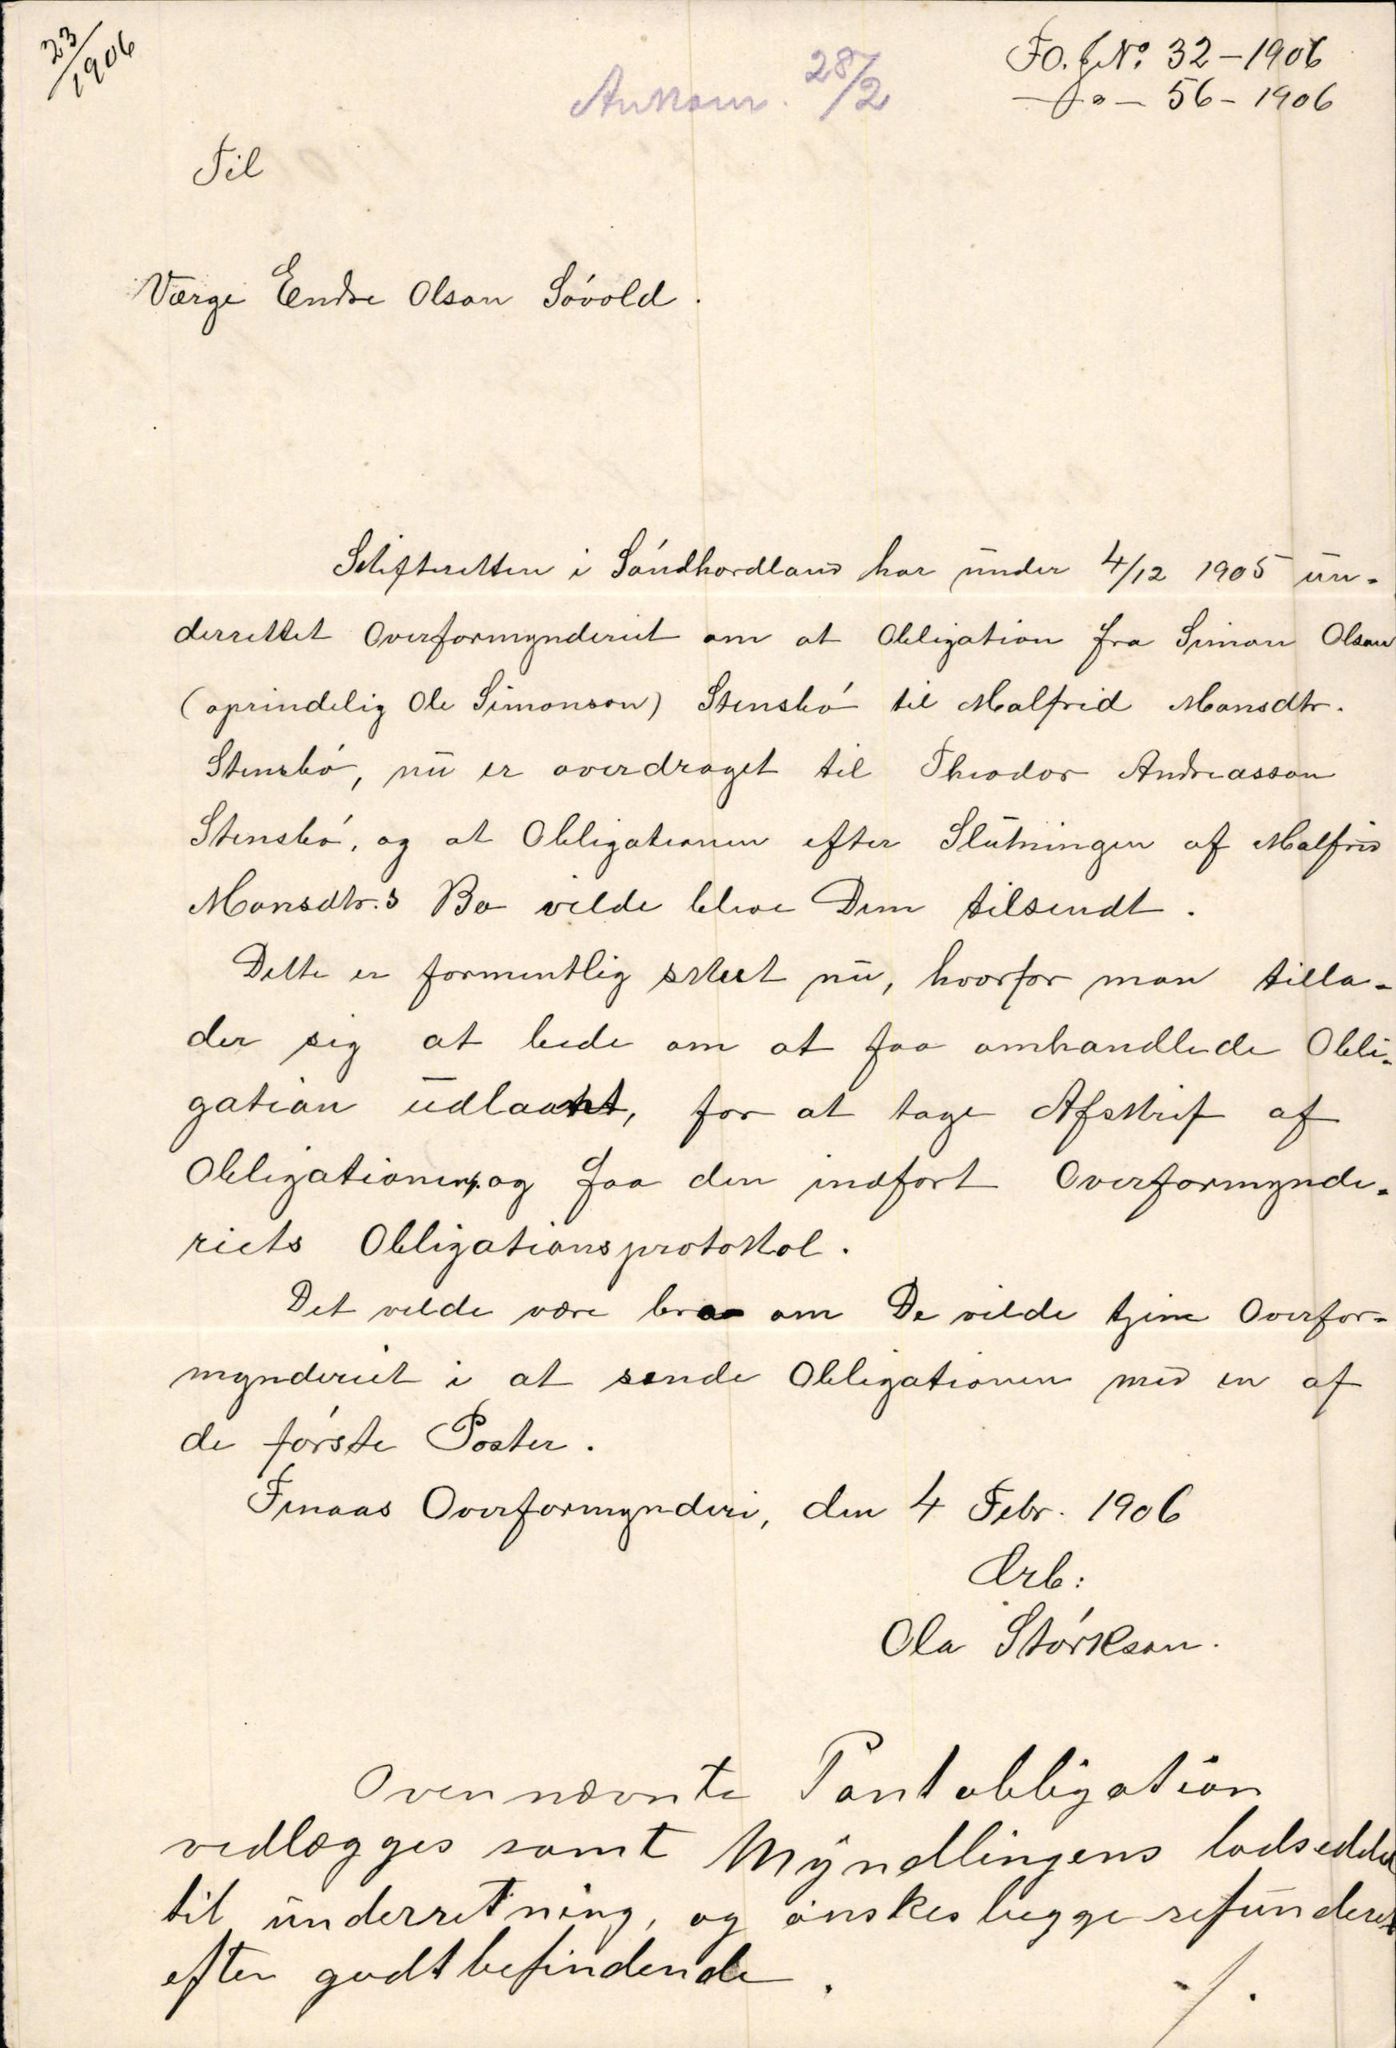 23/1906
Ankom. 28/2
FO. J.No. 32-1906
— " — 56-1906
Til
Værge Endre Olson Sóvold.
Skifteretten i Sóndhordland har under 4/12 1905 un-
derrettet Overformynderiet om at Obligation fra Simon Olson
(oprindelig Ole Simonson) Stensbó til Malfrid Monsdtr.
Stensbó, nu er overdraget til Theodor Andreasson
Stensbó, og at Obligationen efter Slutningen af Malfrid
Monsdtr.s Bo vilde blive Dem tilsendt.
Dette er formentlig skeet nu, hvorfor man tilla-
der sig at bede om at faa omhandlede Obli-
gation udlaant, for at tage Afskrift af
Obligationen, og faa den indført Overformynde-
riets Obligationsprotokol.
Det vilde være bra om De vilde tjene Overfor-
mynderiet i at sende Obligationen med en af
de fórste Poster.
Finaas Overformynderi, den 4 Febr. 1906
Ærb:
Ola Stórkson.
Ovennævnte Pantobligation
vedlægges samt Myndlingens lodseddel
til underretning, og ønskes begge refunderet
efter godtbefindende.
-/.